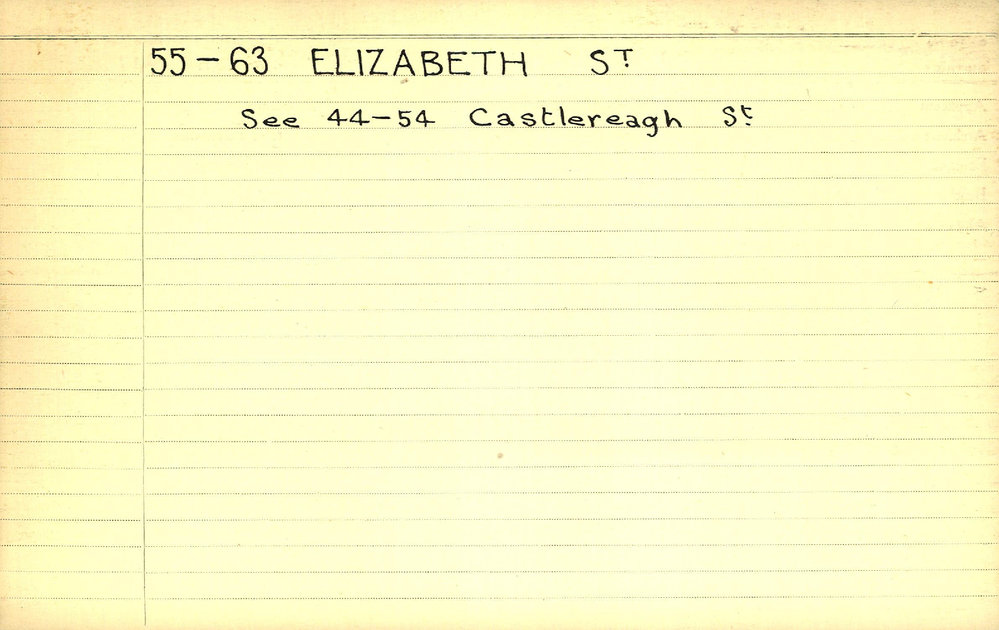 55-63 ELIZABETH ST
See 44-54 Castlereagh St